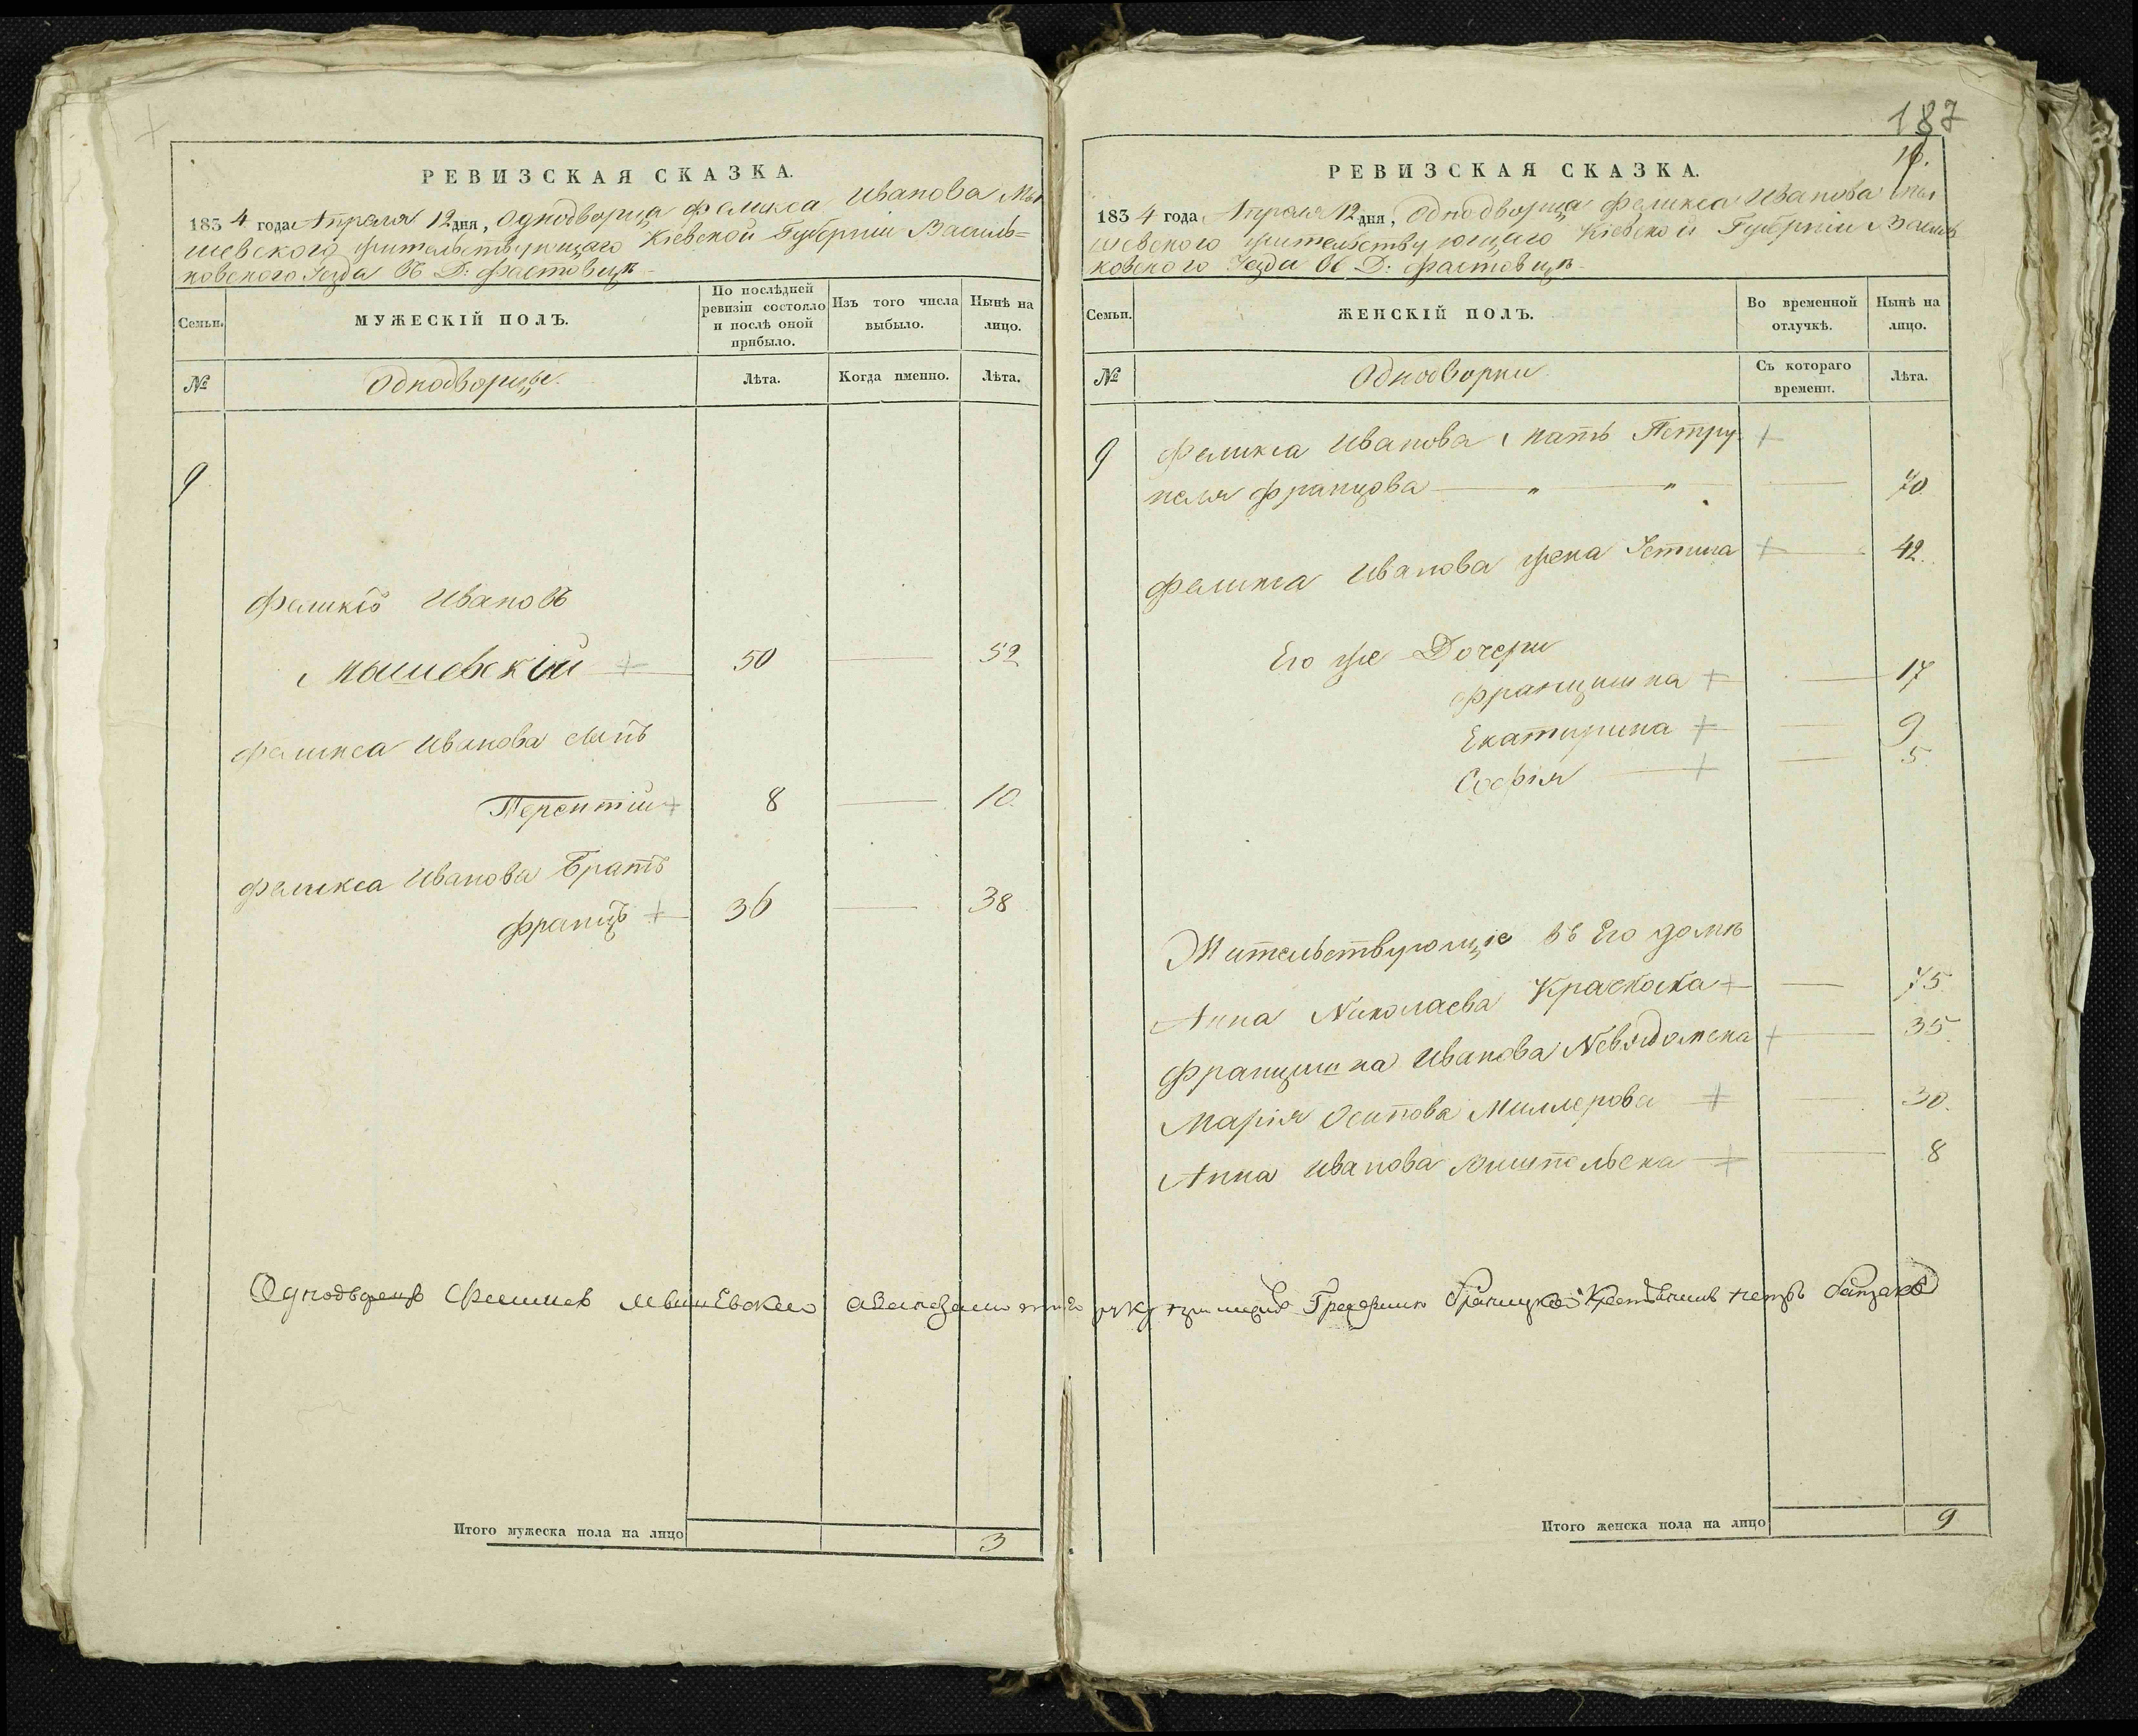 РЕВИЗСКАЯ СКАЗКА.
1834 года Апреля 12 дня, Однодворца Феликса Иванова Мы
шевского жительствующаго Кіевской Губерніи Василь=
ковского Уезда въ Д: Фастовцѣ
Семьи.
МУЖЕСКІЙ ПОЛЪ.
По послѣдней ревизіи состояло и послѣ оной прибыло.
Изъ того числа выбыло.
Нынѣ на лицо.
№
Однодворцы.
Лѣта.
Когда именно.
Лѣта.
9
Феликсъ Ивановъ
Мышевскій + 50 — 52
Феликса Иванова сынъ
Терентій + 8 — 10
Феликса Иванова Братъ
Францъ + 36 — 38
Итого мужеска пола на лицо 3
187
РЕВИЗСКАЯ СКАЗКА.
1834 года Апреля 12 дня, Однодворца Феликса Иванова Мы
шевского жительствующаго Кіевской Губерніи Василь
ковского Уезда въ Д: Фастовцѣ
Семьи.
ЖЕНСКІЙ ПОЛЪ.
Во временной отлучкѣ.
Нынѣ на лицо.
№
Однодворки
Съ котораго времени.
Лѣта.
9 Феликса Иванова мать Петру +
неля Францова — " — " — 70
Феликса Иванова жена Устина + — 42
Его же Дочери
Францишка + — 17
Екатирина + — 9
Софія + — 5
Жительствующіе въ Его домѣ
Анна Николаева + — 75
Францишка Иванова Невядомска + — 35
Марія Осипова Миллерова + — 30.
Анна Иванова + — 8
Однодворецъ Феликсъ Мышевски
Итого женска пола на лицо 9